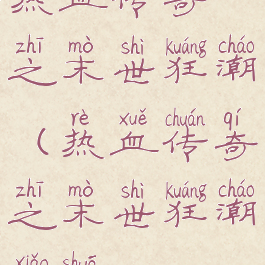 热血传奇
zhī mò shì kuáng cháo
之末世狂潮
rè xuě chuán qí
（热血传奇
zhī mò shì kuáng cháo
之末世狂潮
xiǎo shuō